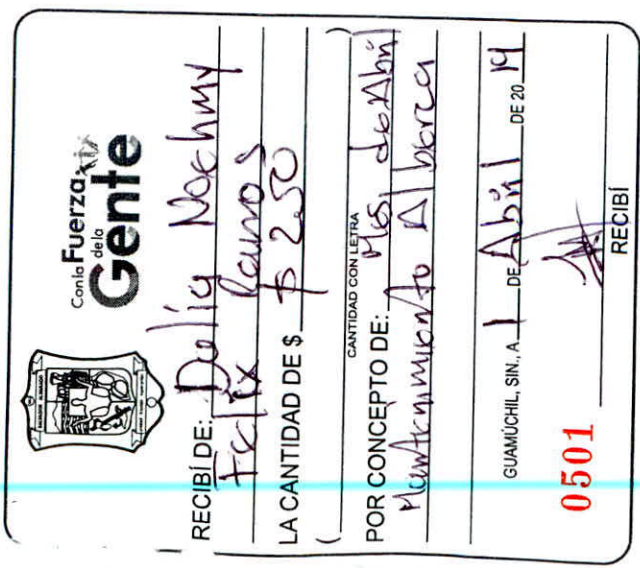 Con la Fuerza
de la
Gente
RECIBÍ DE: Delia Nohemy
Felix Ramos
LA CANTIDAD DE $ $ 250
( CANTIDAD CON LETRA )
POR CONCEPTO DE: Mes de Abril
Mantenimiento Alberca
GUAMÚCHIL, SIN., A 1 DE Abril DE 20 19
0501
RECIBÍ